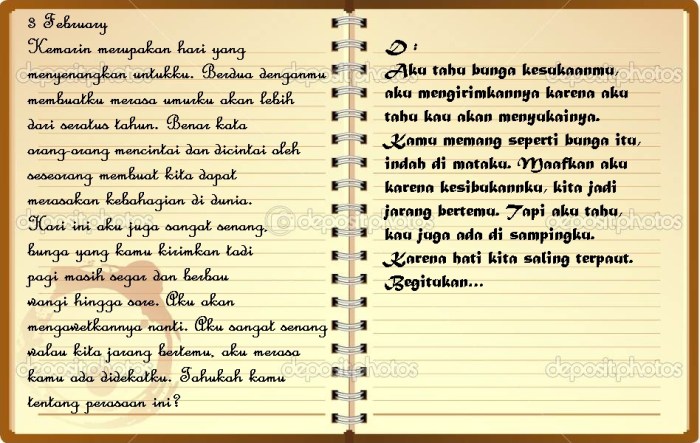 3 February
Kemarin merupakan hari yang
menyenangkan untukku. Berdua denganmu
membuatku merasa umurku akan lebih
dari seratus tahun. Benar kata
orang-orang mencintai dan dicintai oleh
seseorang membuat kita dapat
merasakan kebahagian di dunia.
Hari ini aku juga sangat senang.
bunga yang kamu kirimkan tadi
pagi masih segar dan berbau
wangi hingga sore. Aku akan
mengawetkannya nanti. Aku sangat senang
walau kita jarang bertemu, aku merasa
kamu ada didekatku. Tahukah kamu
tentang perasaan ini?
D :
Aku tahu bunga kesukaanmu,
aku mengirimkannya karena aku
tahu kau akan menyukainya.
Kamu memang seperti bunga itu,
indah di mataku. Maafkan aku
karena kesibukannku, kita jadi
jarang bertemu. Tapi aku tahu,
kau juga ada di sampingku.
Karena hati kita saling terpaut.
Begitukan...
depositphotos
depositphotos
depositphotos
depositphotos
depositphotos
depositphotos